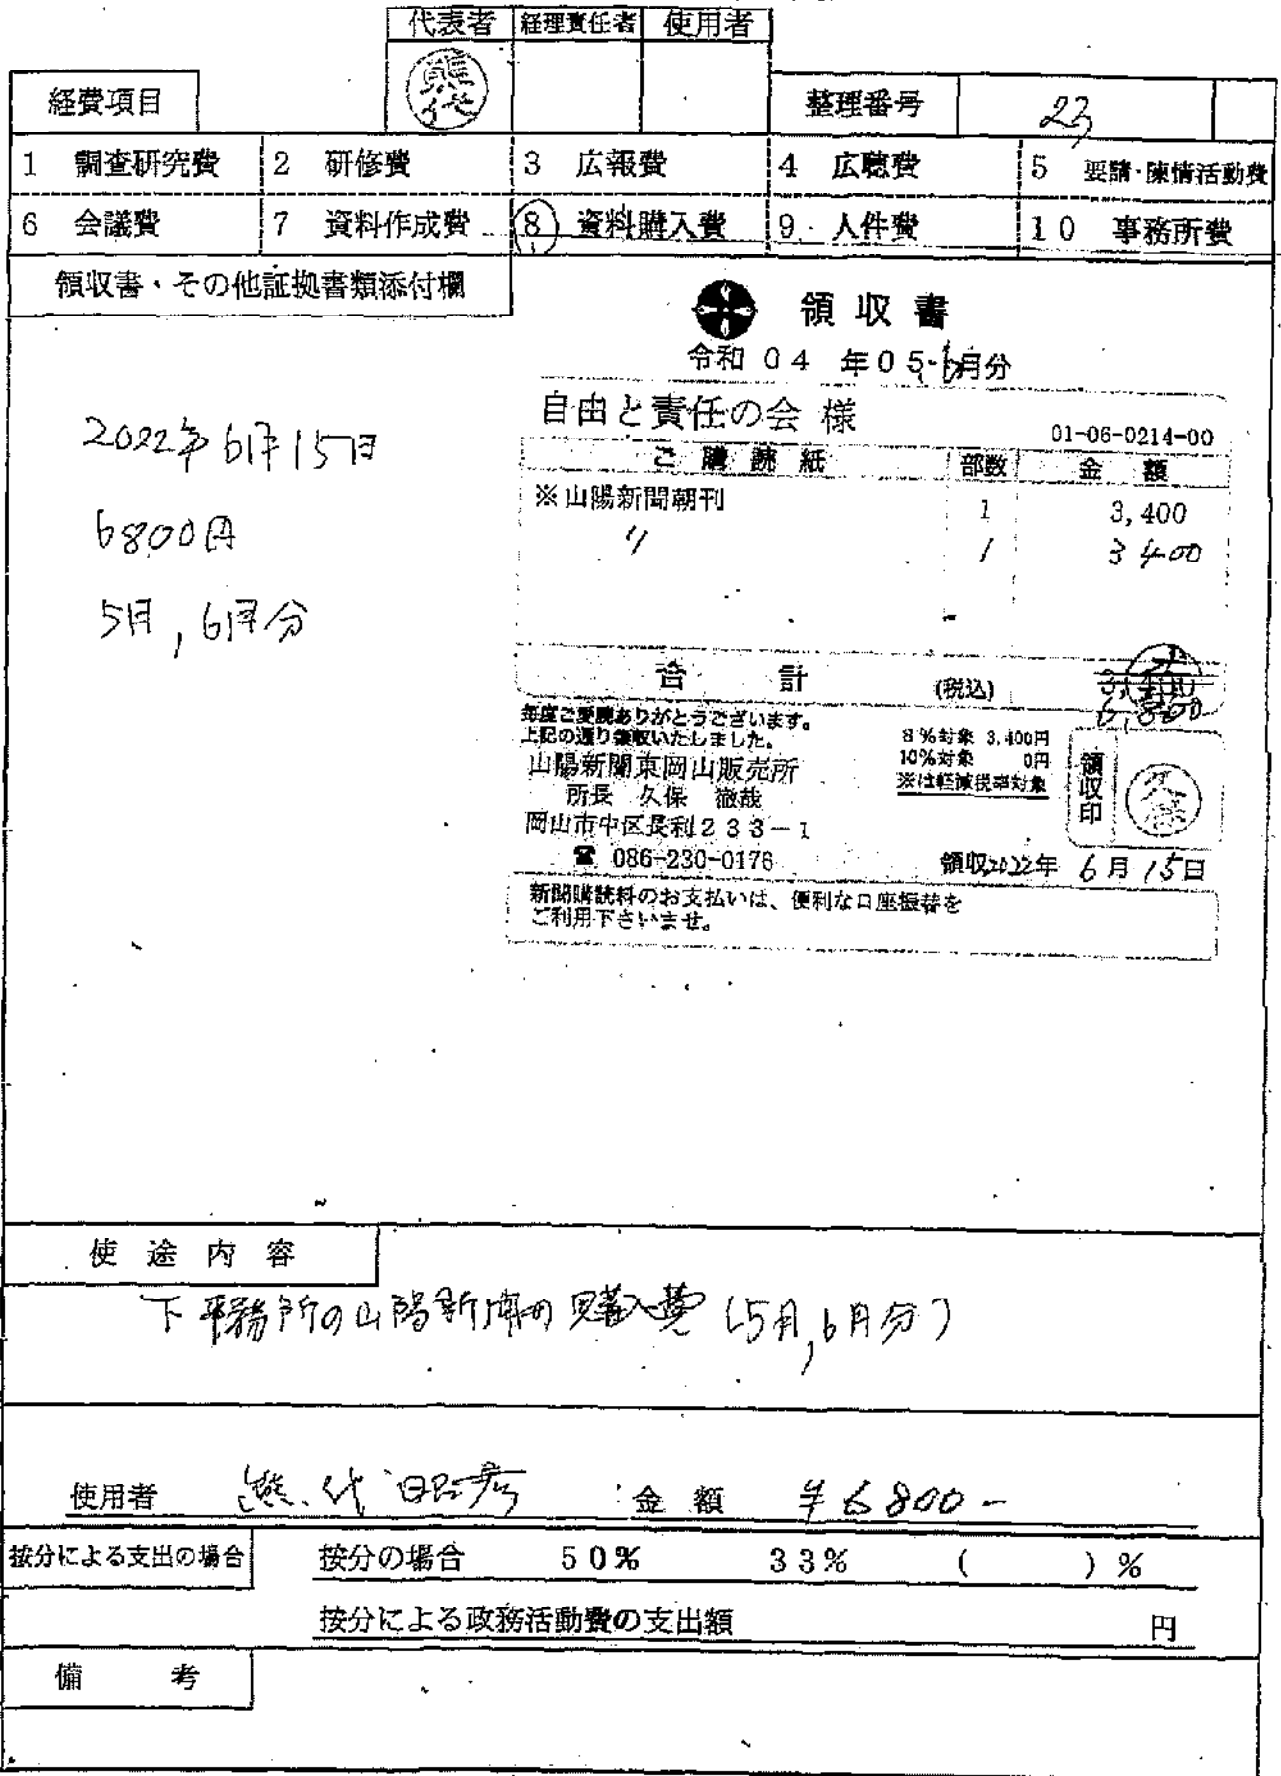 代表者 経理責任者 使用者
熊代
経費項目 整理番号 23
1 調査研究費 2 研修費 3 広報費 4 広聴費 5 要請・陳情活動費
6 会議費 7 資料作成費 8 資料購入費 9 人件費 10 事務所費
領収書・その他証拠書類添付欄
領収書
令和 04 年05.6月分
自由と責任の会 様
01-06-0214-00
ご購読紙 部数 金額
※山陽新聞朝刊 1 3,400
〃 1 3400
合計 (税込) 3,400
6,800
毎度ご愛読ありがとうございます。
上記の通り領収いたしました。
8%対象 3,400円
10%対象 0円
※は軽減税率対象
山陽新聞東岡山販売所
所長 久保 徹哉
岡山市中区長利233-1
☎ 086-230-0176
領収印
久保
領収2022年 6月 15日
新聞購読料のお支払いは、便利な口座振替を
ご利用下さいませ。
2022年6月15日
6800円
5月,6月分
使途内容
下事務所の山陽新聞の購入費 (5月,6月分)
使用者 熊代昭彦 金額 ¥6800-
按分による支出の場合 按分の場合 50% 33% ( )%
按分による政務活動費の支出額 円
備考